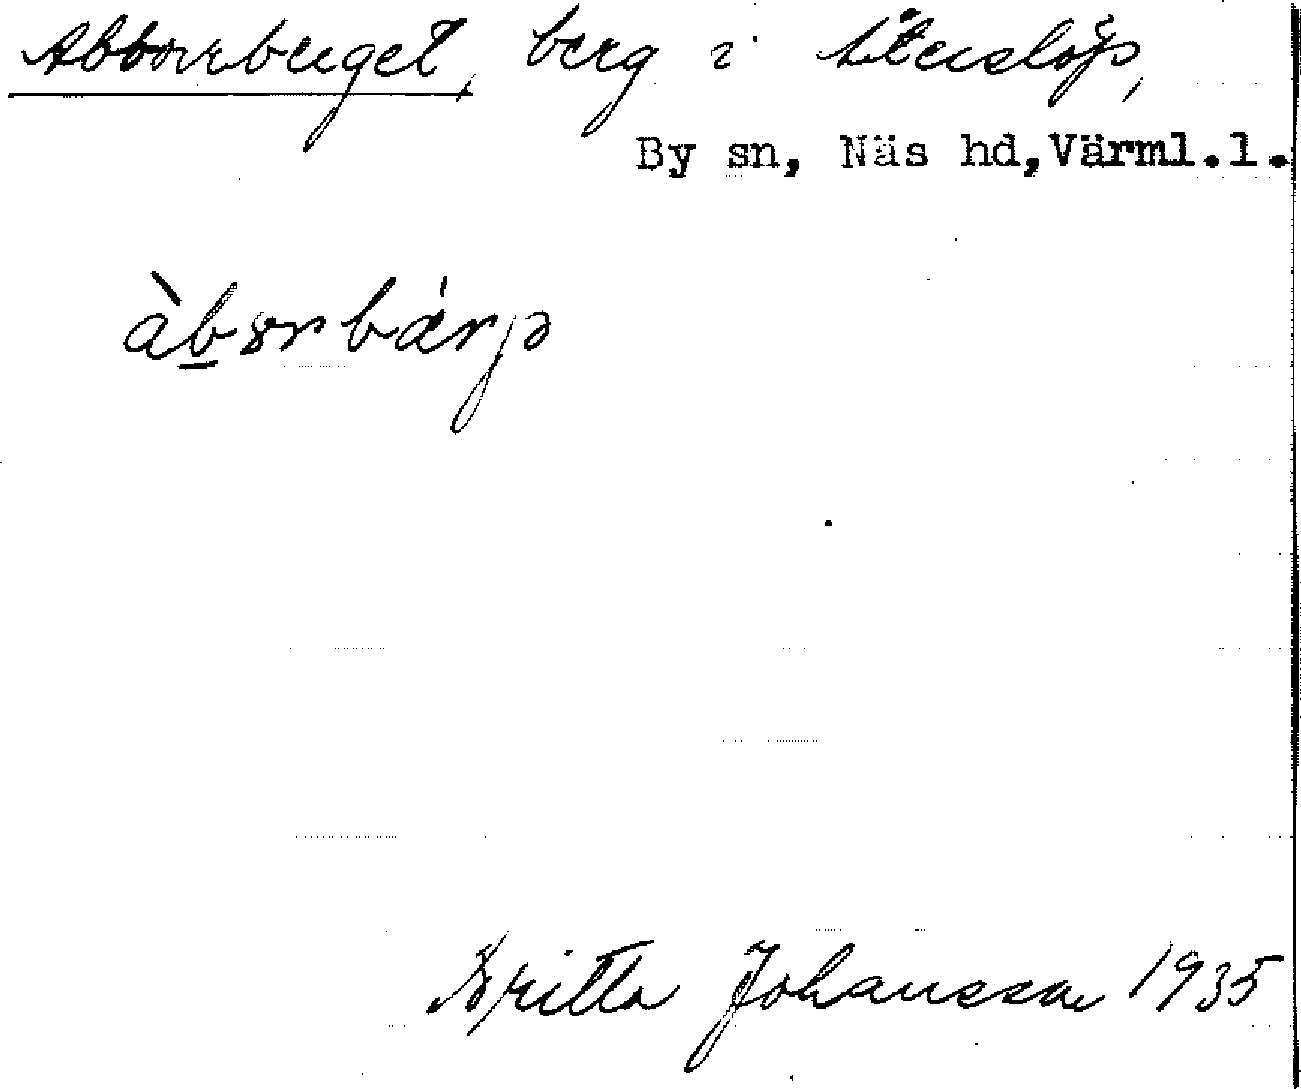 Abborrberget, berg i
By sn, Näs hd, Värml.l.
Britta Johansson 1935